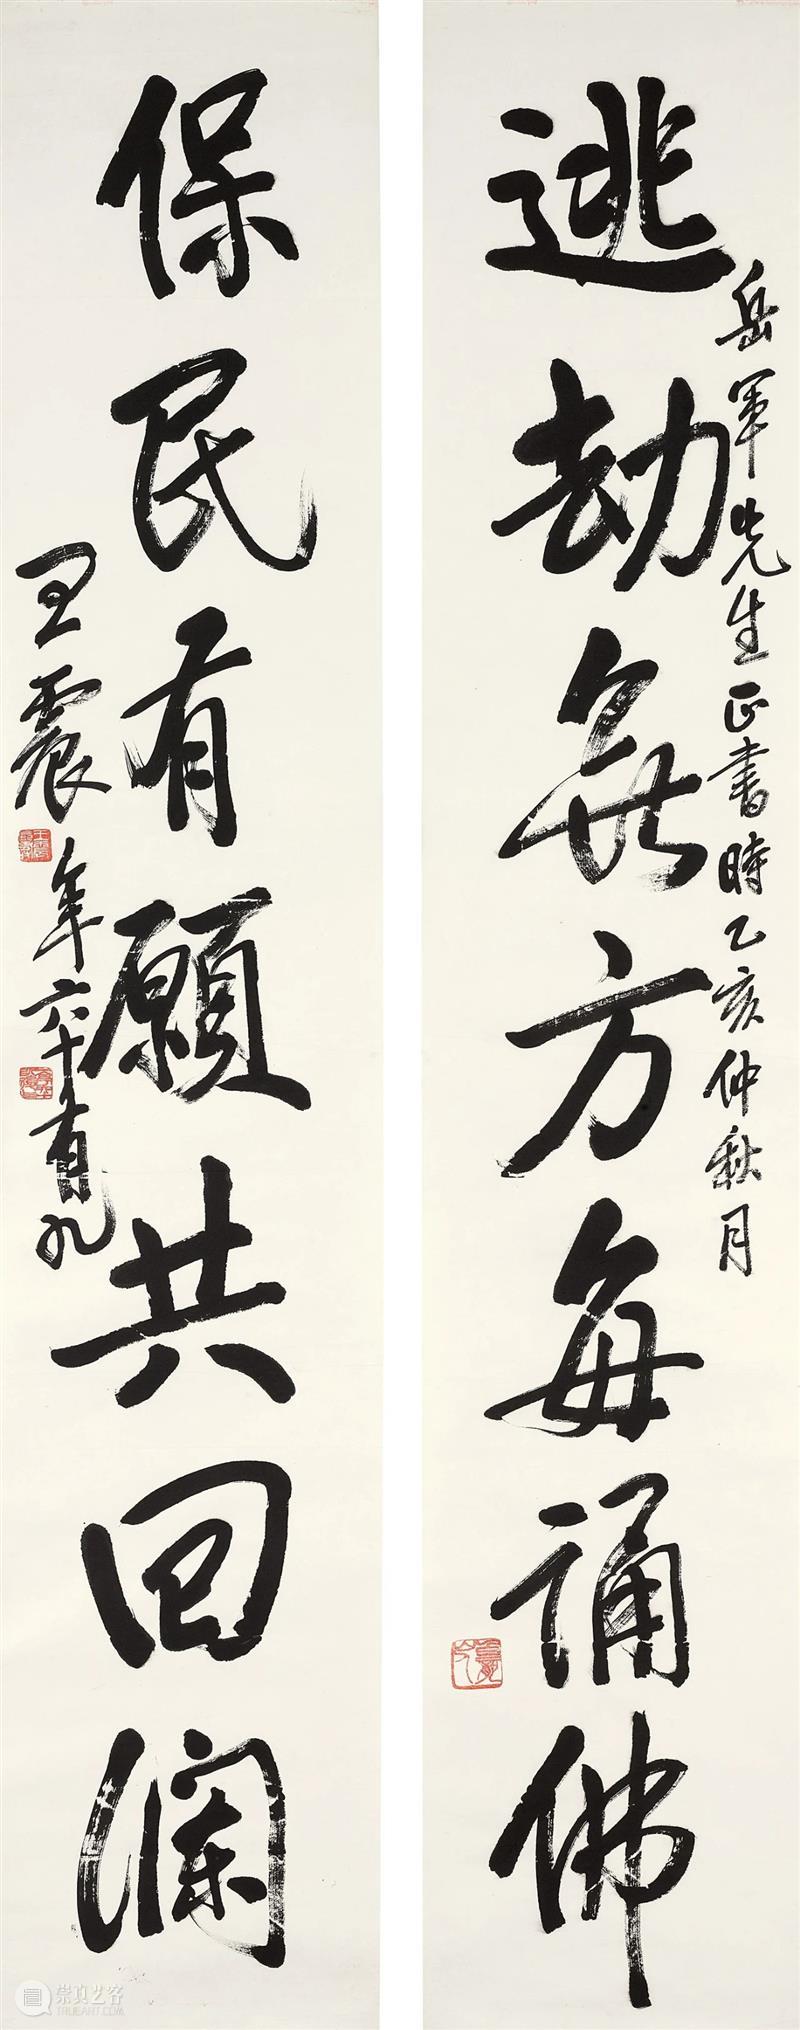 逃劫無方每誦佛
岳軍先生正書時乙亥仲秋月
保民有願共回瀾
王震年六十有九
崇真艺客
TRUEART.COM